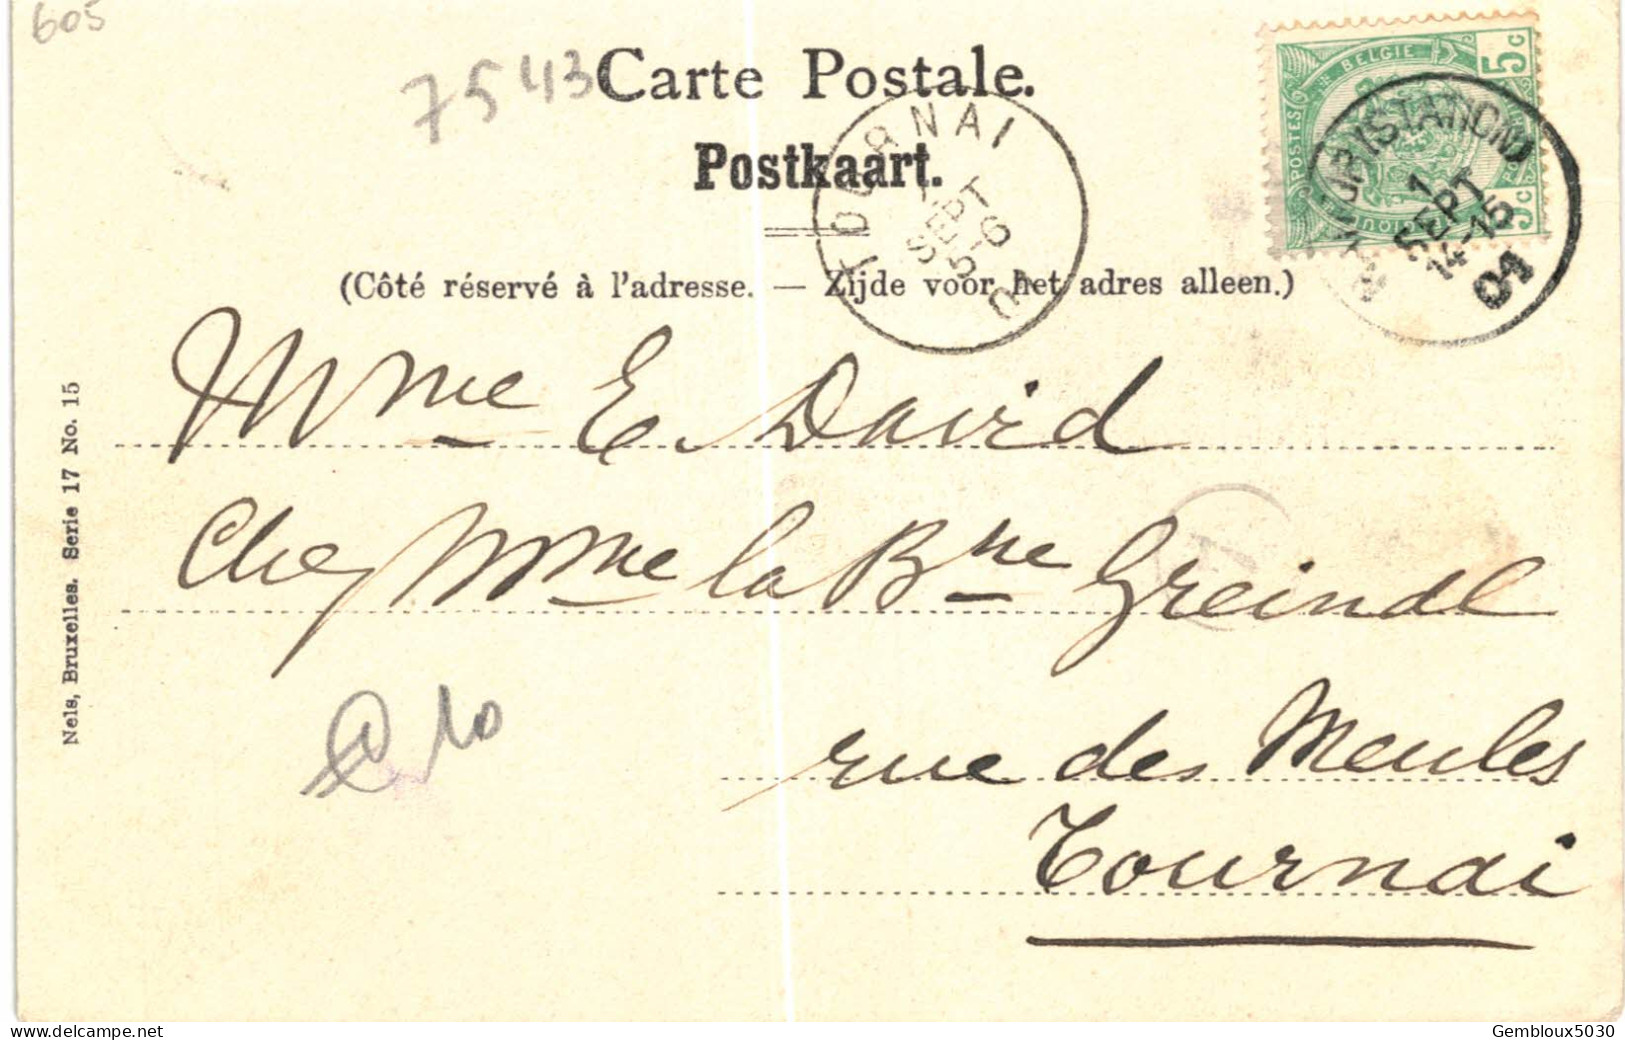 605
7543
Carte Postale.
Postkaart.
(Côté réservé à l'adresse. — Zijde voor het adres alleen.)
POSTES BELGIE 5c
5c
NAMUR (STATION)
1
SEPT
14-15
01
TOURNAI
1
SEPT
5-6
01
Mme E. David
Chez Mme la Bne Greindl
rue des Meules
Tournai
10
Nels, Bruxelles. Serie 17 No. 15
delcampe.net
Gembloux5030